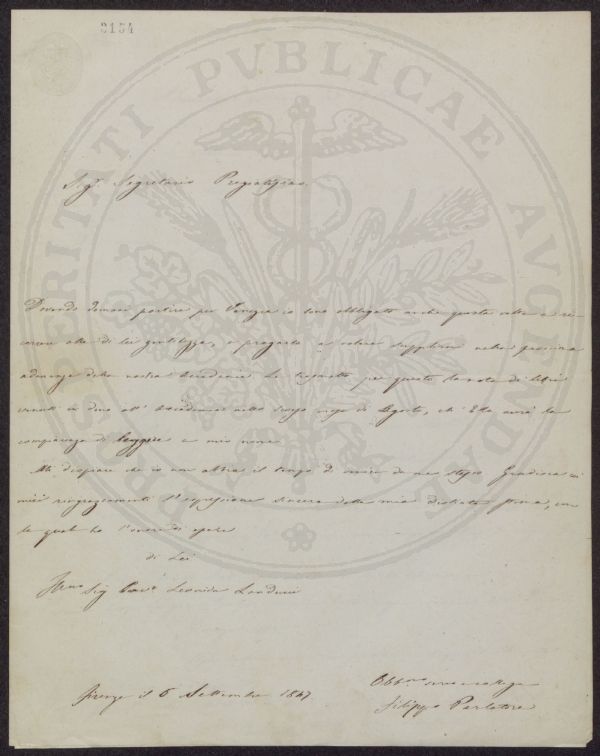 2154
PROSPERITATI PVBLICAE AVGENDAE
Sigr. Segretario Pregiatissimo
Dovendo domani partire per Venezia io sono obbligato anche questa volta a ri-
correre alla di lei gentilezza, e pregarla a volere supplirmi nella prossima
adunanza della nostra Accademia. Le trasmetto per questo la nota di libri
venuti in dono all' Accademia nello scorso mese di Agosto, che Ella avrà la
compiacenza di leggere a mio nome.
Mi dispiace che io non abbia il tempo di venire da me stesso. Gradisca i
miei ringraziamenti e l'espressione sincera della mia distinta stima, con
la quale ho l'onore di essere
di Lei
Sig Cav. Leonida Landucci
Firenze il 6 Settembre 1847
Obbmo
Filippo Parlatore